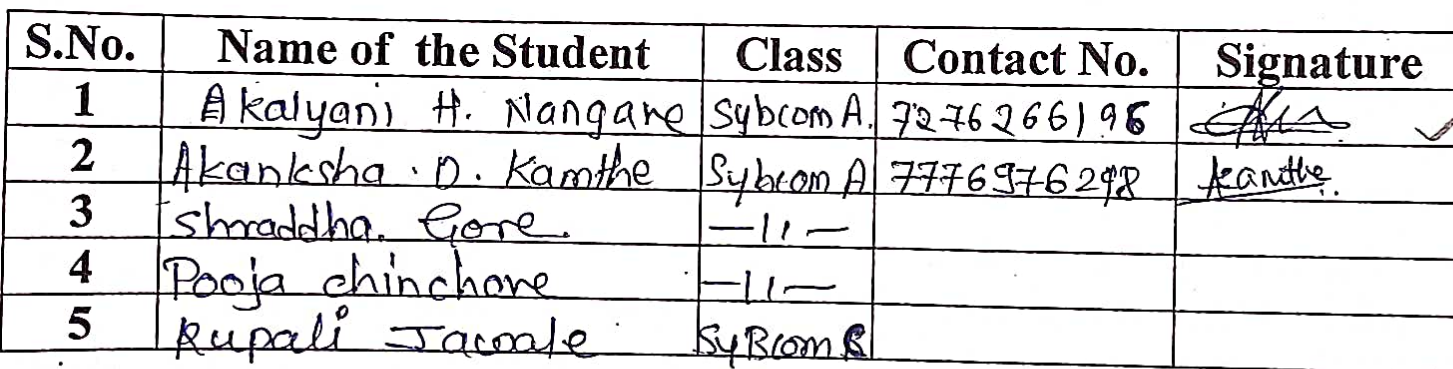 S.No. Name of the Student Class Contact No. Signature
1 kalyani H. Nangare SybcomA. 7276266196
2 Akanksha . D. Kamthe Sybcom A 7776976298 Kamthe
3 Shraddha. Gore. —11—
4 Pooja chinchore —11—
5 Rupali SyBcom